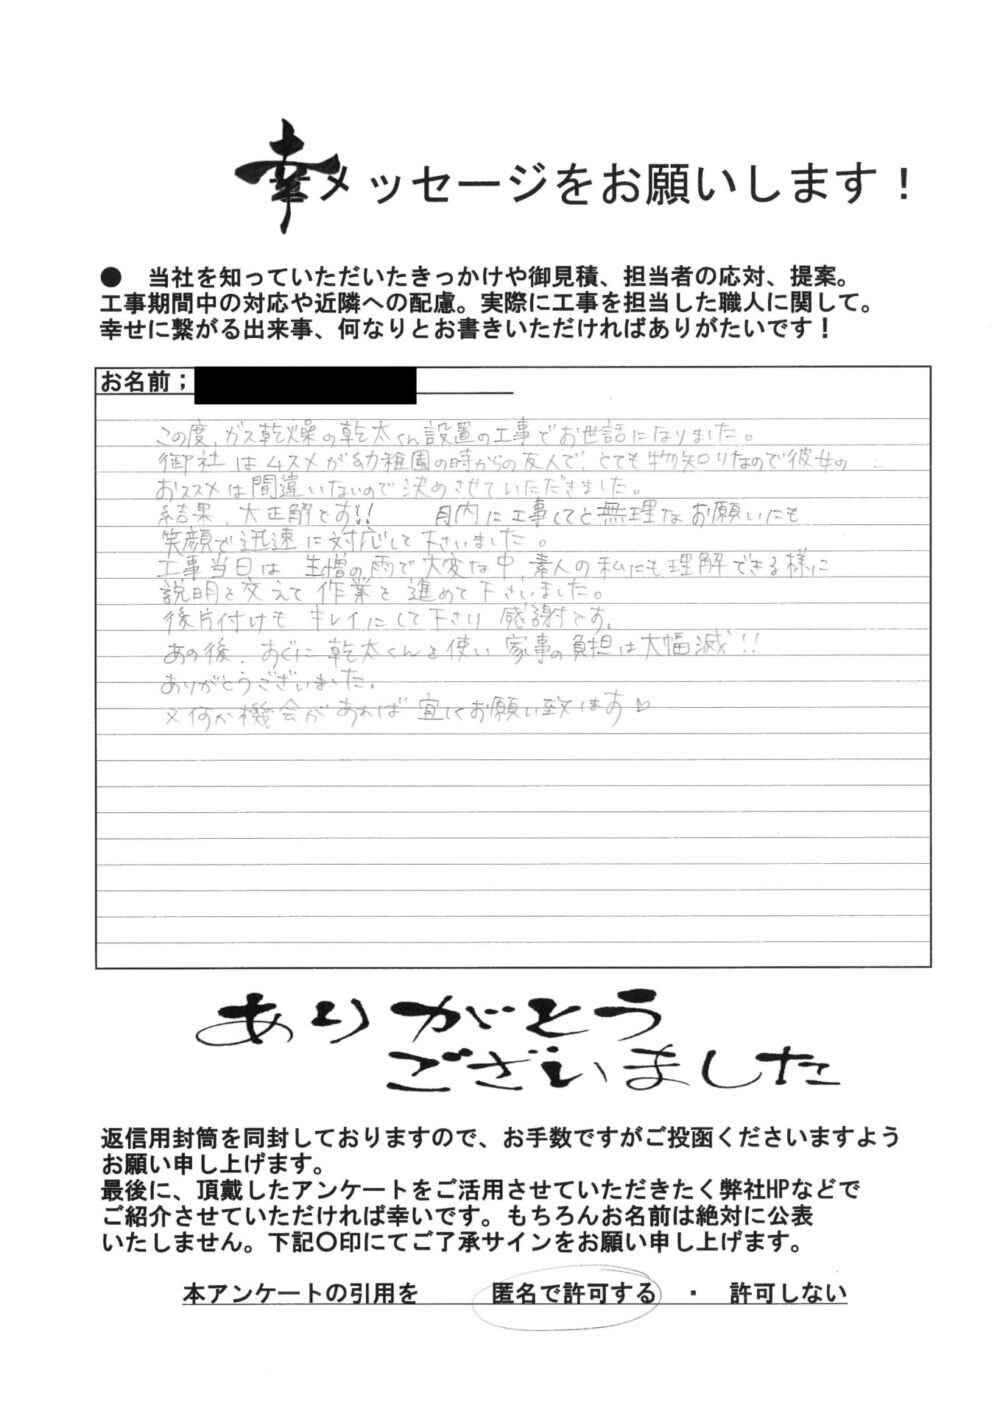 幸メッセージをお願いします！
● 当社を知っていただいたきっかけや御見積、担当者の応対、提案。
工事期間中の対応や近隣への配慮。実際に工事を担当した職人に関して。
幸せに繋がる出来事、何なりとお書きいただければありがたいです！
お名前；
この度、ガス乾燥の乾太くん設置の工事でお世話になりました。
御社はムスメが幼稚園の時からの友人で、とても物知りなので彼女の
おススメは間違いないので決めさせていただきました。
結果、大正解です!! 月内に工事してと無理なお願いにも
笑顔で迅速に対応して下さいました。
工事当日は生憎の雨で大変な中、素人の私にも理解できる様に
説明を交えて作業を進めて下さいました。
後片付けもキレイにして下さり感謝です。
あの後、すぐに乾太くんを使い家事の負担は大幅減!!
ありがとうございました。
又何か機会があれば宜しくお願い致します♡
ありがとう
ございました
返信用封筒を同封しておりますので、お手数ですがご投函くださいますよう
お願い申し上げます。
最後に、頂戴したアンケートをご活用させていただきたく弊社HPなどで
ご紹介させていただければ幸いです。もちろんお名前は絶対に公表
いたしません。下記〇印にてご了承サインをお願い申し上げます。
本アンケートの引用を 匿名で許可する ・ 許可しない